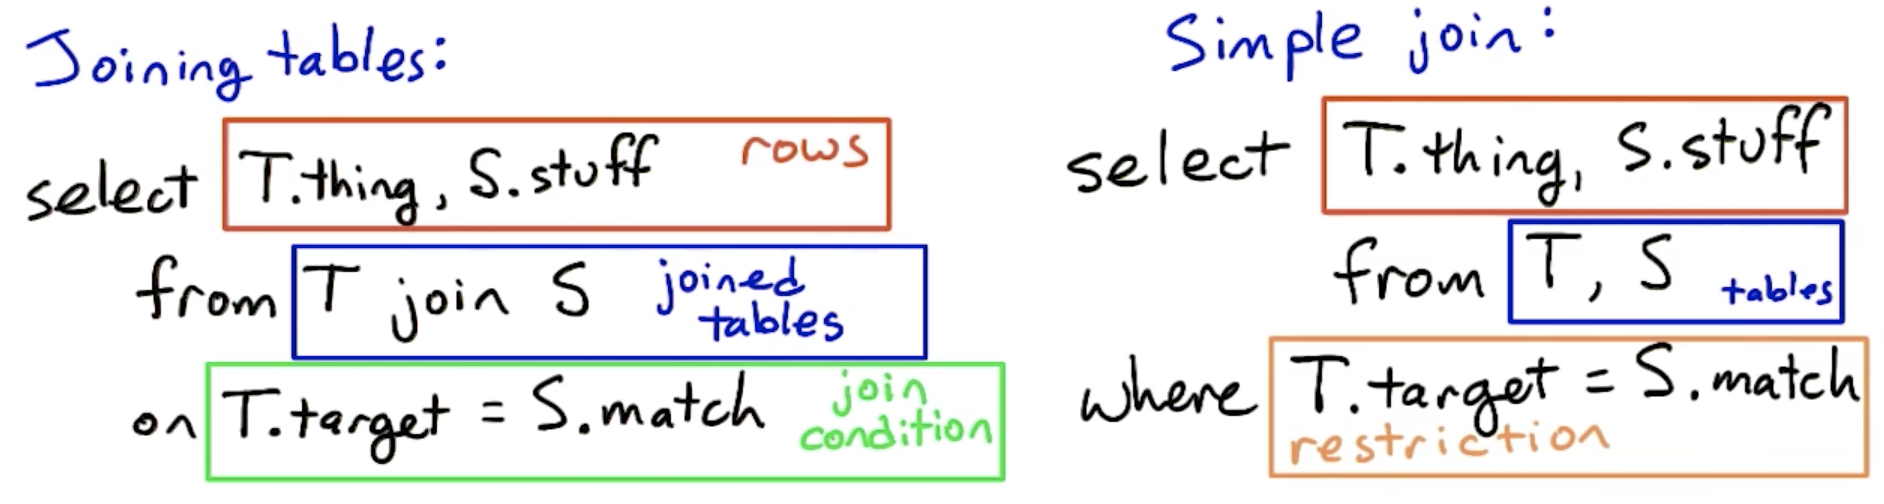 Joining tables:
select T.thing, S.stuff rows
from T join S joined tables
on T.target = S.match join condition
Simple join:
select T.thing, S.stuff
from T, S tables
where T.target = S.match
restriction